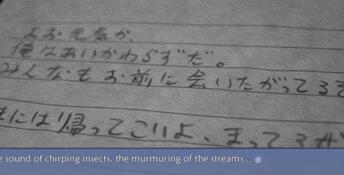 よお元気か。
俺はあいかわらずだ。
みんなもお前に会いたがってるぞ
には帰ってこいよ、まってるぜ
e sound of chirping insects, the murmuring of the streams...